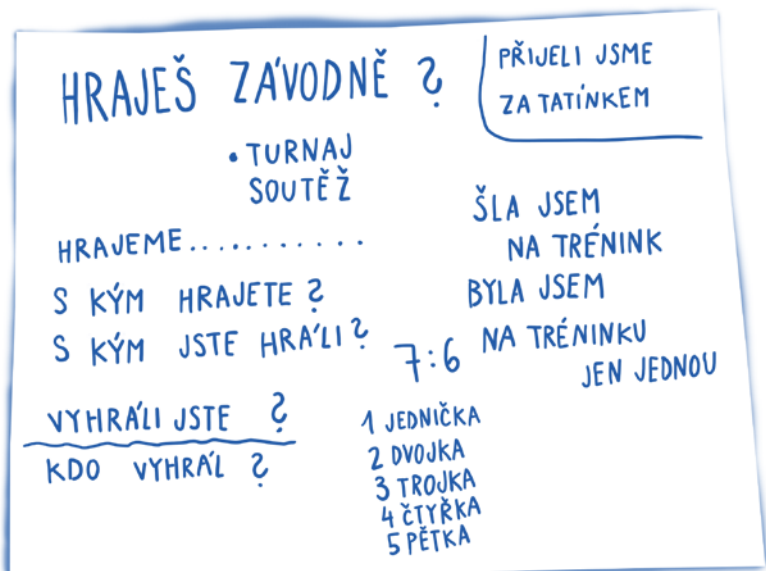 HRAJEŠ ZÁVODNĚ ?
PŘIJELI JSME
ZA TATÍNKEM
• TURNAJ
SOUTĚŽ
HRAJEME...........
S KÝM HRAJETE ?
S KÝM JSTE HRÁLI ?
VYHRÁLI JSTE ?
KDO VYHRÁL ?
ŠLA JSEM
NA TRÉNINK
BYLA JSEM
NA TRÉNINKU
JEN JEDNOU
7:6
1 JEDNIČKA
2 DVOJKA
3 TROJKA
4 ČTYŘKA
5 PĚTKA